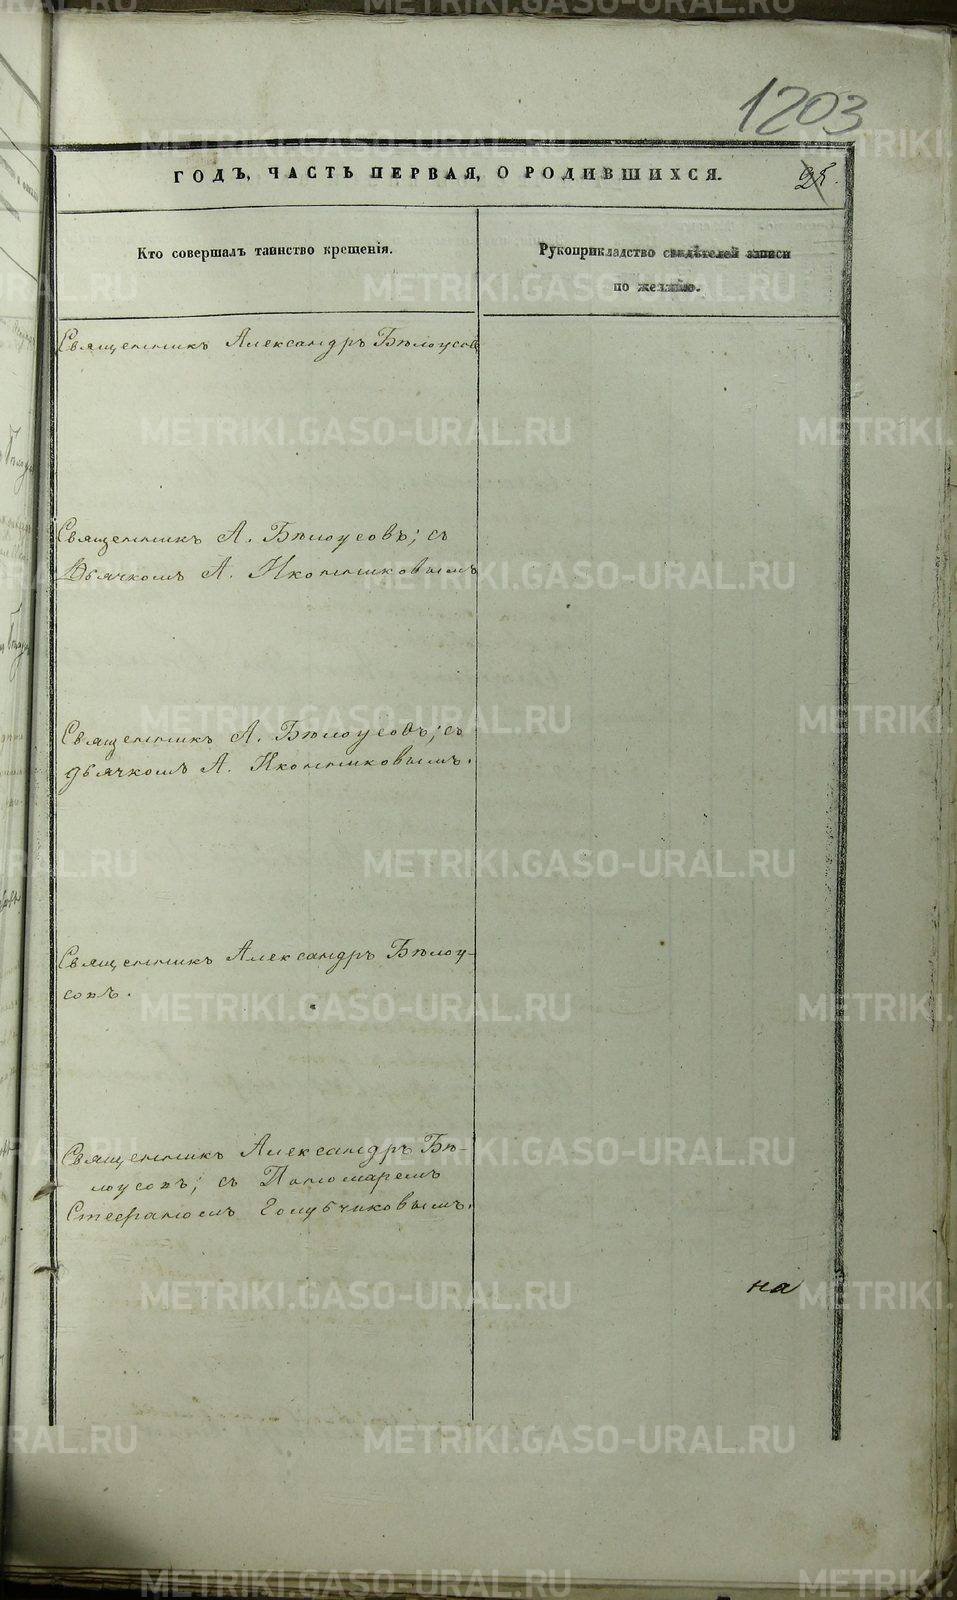 1203
ГОДЪ, ЧАСТЬ ПЕРВАЯ, О РОДИВШИХСЯ.
Кто совершалъ таинство крещенія.
Рукоприкладство свидѣтелей записи
по желанію.
Священникъ Александръ Бѣлоусов
Священникъ А. Бѣлоусовъ; съ
Дьячкомъ А. Иконниковымъ
Священникъ А. Бѣлоусовъ; съ
дьячкомъ А. Иконниковымъ.
Священникъ Александръ Бѣлоу-
совъ.
Священникъ Александръ Бѣ-
лоусовъ; съ Пономаремъ
Стефаномъ Голубчиковымъ.
на
METRIKI.GASO-URAL.RU